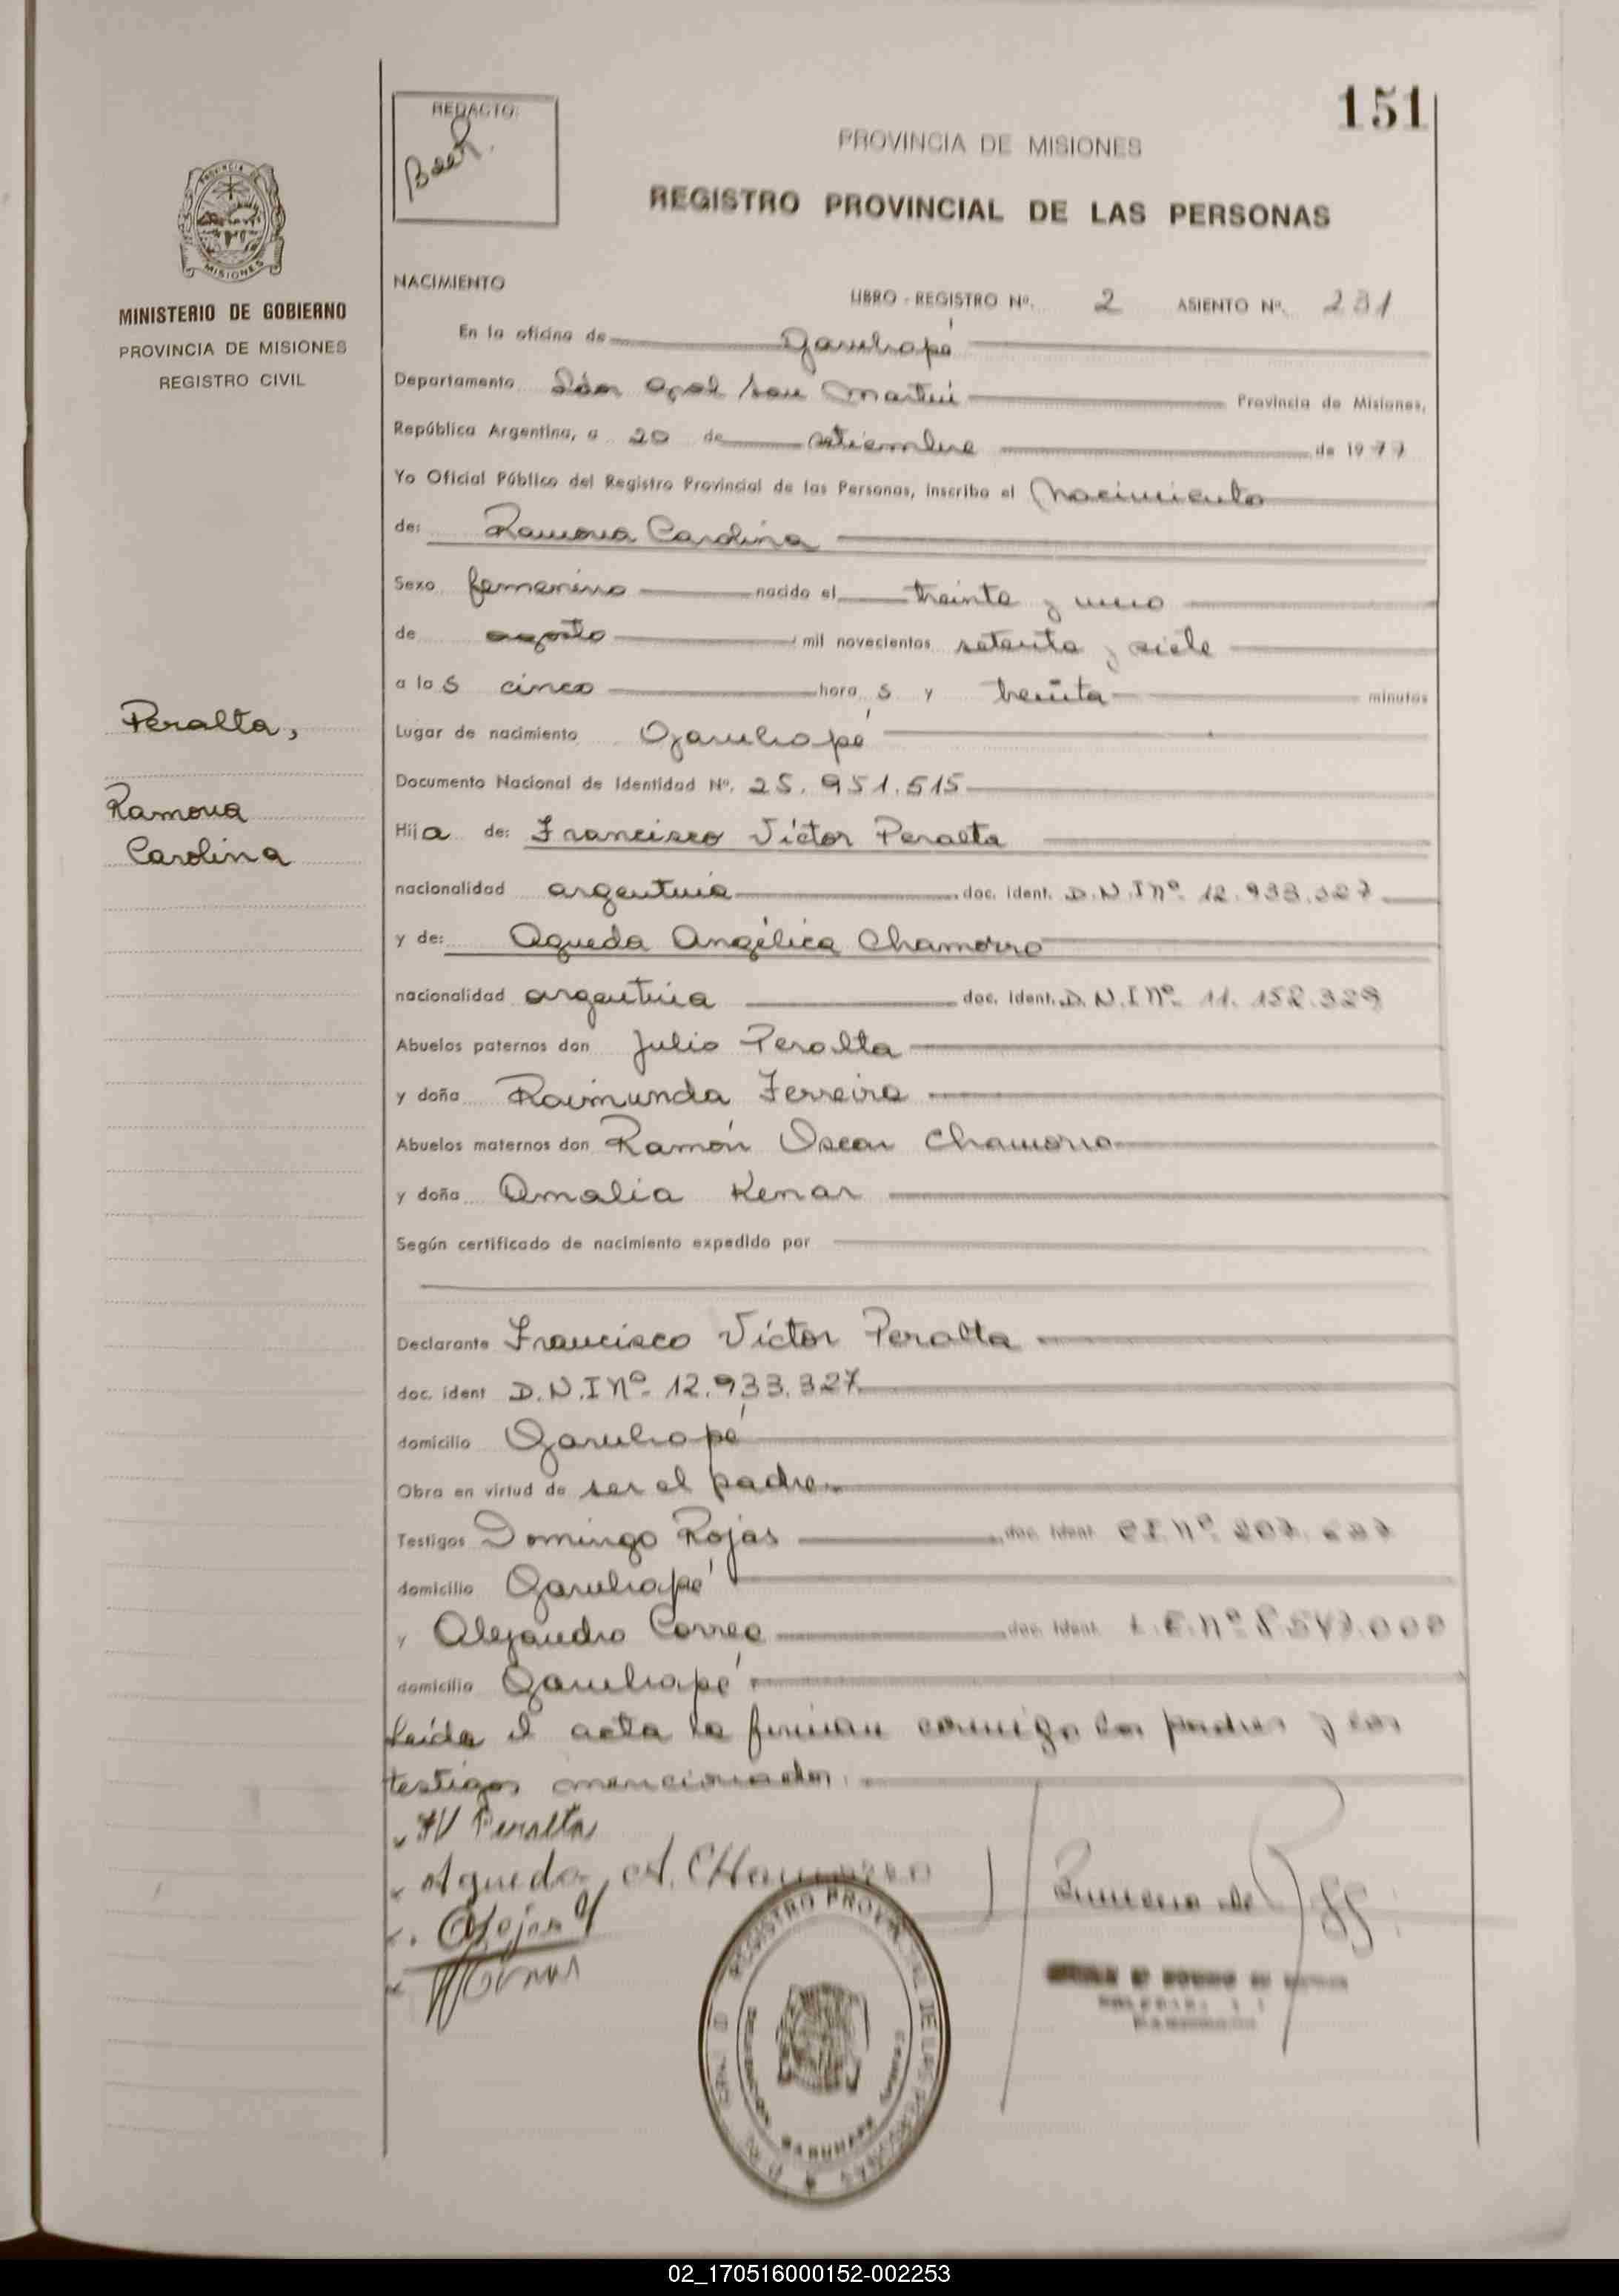 151
REDACTO:
PROVINCIA DE MISIONES
REGISTRO PROVINCIAL DE LAS PERSONAS
PROVINCIA DE
MISIONES
MINISTERIO DE GOBIERNO
PROVINCIA DE MISIONES
REGISTRO CIVIL
NACIMIENTO
LIBRO - REGISTRO Nº. 2 ASIENTO Nº. 281
En la oficina de Garuhapé
Departamento Lib. Gral San Martín Provincia de Misiones,
República Argentina, a 20 de setiembre de 1977
Yo Oficial Público del Registro Provincial de las Personas, inscribo el Nacimiento
de: Ramona Carolina
Sexo femenino nacido el treinta y uno
de agosto mil novecientos setenta y siete
a las cinco horas y treinta minutos
Peralta,
Ramona
Carolina
Lugar de nacimiento Garuhapé
Documento Nacional de Identidad Nº. 25.951.515
Hija de: Francisco Víctor Peralta
nacionalidad argentina doc. ident. D.N.I Nº 12.933.327
y de: Agueda Angélica Chamorro
nacionalidad argentina doc. ident. D.N.I Nº 11.152.329
Abuelos paternos don Julio Peralta
y doña Raimunda Ferreira
Abuelos maternos don Ramón Oscar Chamorro
y doña Amalia Kenar
Según certificado de nacimiento expedido por
Declarante Francisco Víctor Peralta
doc. ident D.N.I Nº 12.933.327
domicilio Garuhapé
Obra en virtud de ser el padre.
Testigos Domingo Rojas doc. ident. C.I Nº
domicilio Garuhapé
y Alejandro Correa doc. ident. L.E. Nº
domicilio Garuhapé
Leída el acta la firman conmigo los padres y los
testigos mencionados.
FV Peralta
Agueda A. CHamorro
REGISTRO PROVINCIAL DE LAS PERSONAS
GARUHAPE
02_170516000152-002253